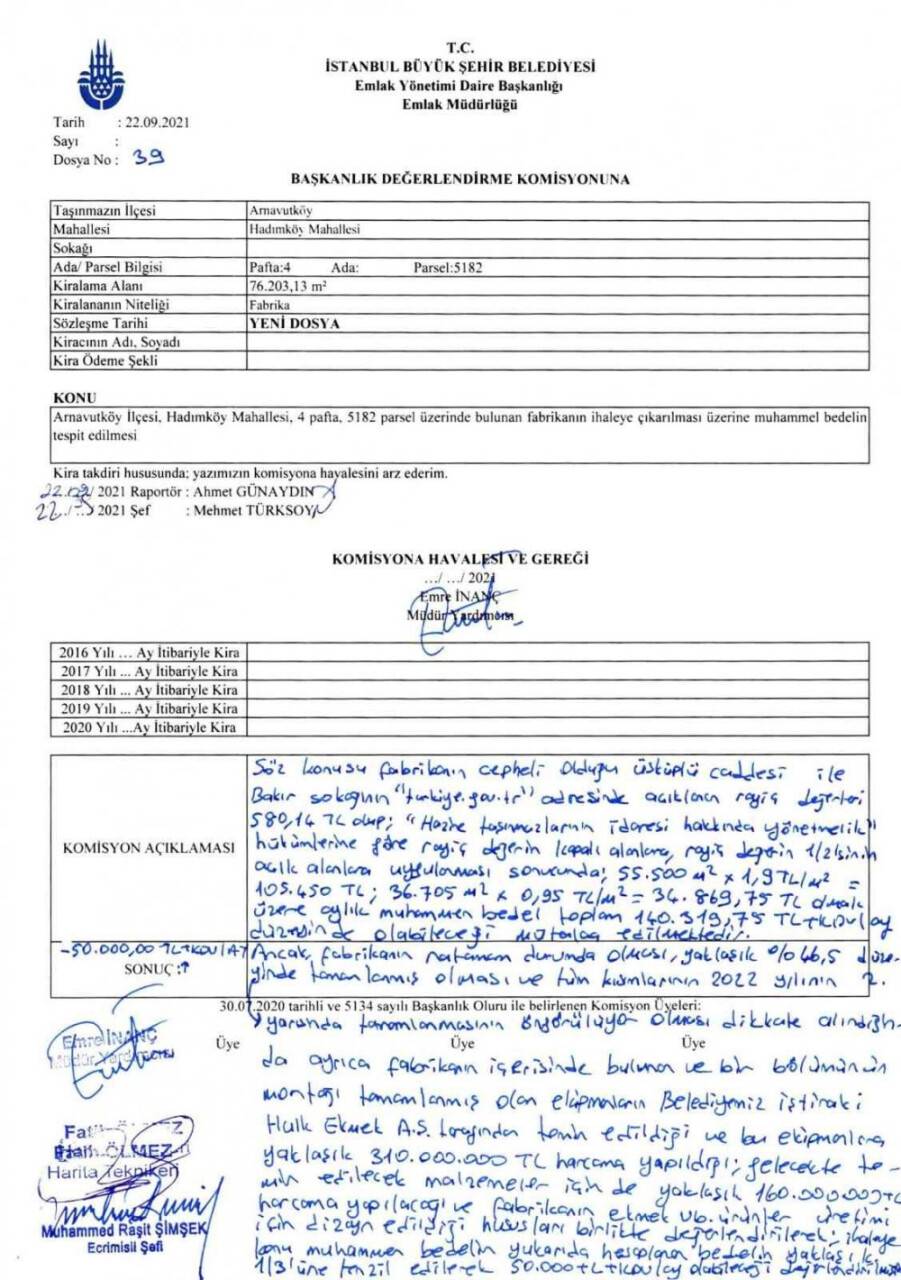 T.C.
İSTANBUL BÜYÜK ŞEHİR BELEDİYESİ
Emlak Yönetimi Daire Başkanlığı
Emlak Müdürlüğü
Tarih : 22.09.2021
Sayı :
Dosya No : 39
BAŞKANLIK DEĞERLENDİRME KOMİSYONUNA
Taşınmazın İlçesi Arnavutköy
Mahallesi Hadımköy Mahallesi
Sokağı
Ada/ Parsel Bilgisi Pafta:4 Ada: Parsel:5182
Kiralama Alanı 76.203,13 m²
Kiralananın Niteliği Fabrika
Sözleşme Tarihi YENİ DOSYA
Kiracının Adı, Soyadı
Kira Ödeme Şekli
KONU
Arnavutköy İlçesi, Hadımköy Mahallesi, 4 pafta, 5182 parsel üzerinde bulunan fabrikanın ihaleye çıkarılması üzerine muhammel bedelin
tespit edilmesi
Kira takdiri hususunda; yazımızın komisyona havalesini arz ederim.
22.09/ 2021 Raportör : Ahmet GÜNAYDIN
22./ 2021 Şef : Mehmet TÜRKSOY
KOMİSYONA HAVALESİ VE GEREĞİ
…/ …/ 2021
Emre İNANÇ
Müdür Yardımcısı
2016 Yılı … Ay İtibariyle Kira
2017 Yılı ... Ay İtibariyle Kira
2018 Yılı ... Ay İtibariyle Kira
2019 Yılı ... Ay İtibariyle Kira
2020 Yılı ...Ay İtibariyle Kira
KOMİSYON AÇIKLAMASI
Söz konusu fabrikanın cepheli olduğu üstüplü caddesi ile
Bakır sokağının "turkiye.gov.tr" adresinde açıklanan rayiç değerleri
580,14 TL olup; "Hazine taşınmazlarının idaresi hakkında yönetmelik"
hükümlerine göre rayiç değerin kapalı alanlara, rayiç değerin 1/2'sinin
açık alanlara uygulanması sonucunda; 55.500 m² x 1,9 TL/m² =
105.450 TL; 36.705 m² x 0,95 TL/m² = 34.869,75 TL olmak
üzere aylık muhammen bedel toplam 140.319,75 TL+KDV/ay
düzeyinde olabileceği mütalaa edilmektedir.
-50.000,00 TL+KDV/AY
SONUÇ :↑
Ancak, fabrikanın natamam durumda olması, yaklaşık %46,5 düze-
yinde tamamlanmış olması ve tüm kısımlarının 2022 yılının 2.
30.07.2020 tarihli ve 5134 sayılı Başkanlık Oluru ile belirlenen Komisyon Üyeleri:
yarısında tamamlanmasının öngörülüyor olması dikkate alındığın-
Üye Üye Üye
Emre İNANÇ
Müdür Yardımcısı
da ayrıca fabrikanın içerisinde bulunan ve bir bölümünün
montajı tamamlanmış olan ekipmanların Belediyemiz iştiraki
Halk Ekmek A.Ş. tarafından temin edildiği ve bu ekipmanlara
yaklaşık 310.000.000 TL harcama yapıldığı; gelecekte te-
min edilecek malzemeler için de yaklaşık 160.000.000 TL
harcama yapılacağı ve fabrikanın ekmek vb. ürünler üretimi
için dizayn edildiği hususları birlikte değerlendirilerek; ihaleye
konu muhammen bedelin yukarıda hesaplanan bedelin yaklaşık
1/3'üne tenzil edilerek 50.000 TL+KDV/ay olabileceği değerlendirilmiştir
ÖLMEZ
Harita Teknikeri
Muhammed Raşit ŞİMŞEK
Ecrimisil Şefi